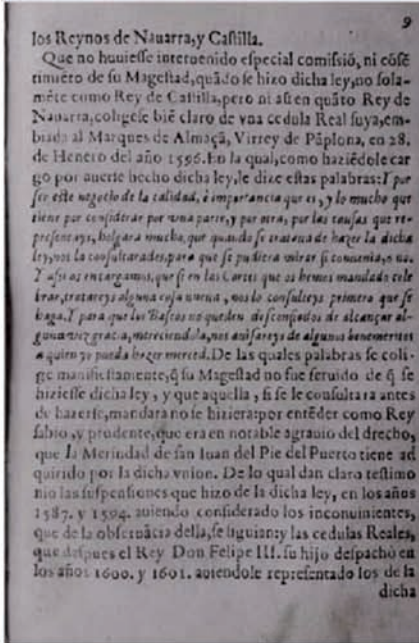 9
los Reynos de Nauarra,y Castilla.
Que no huuiesse interuenido especial comissiō, ni cōsē
timiēto de su Magestad, quādo se hizo dicha ley, no sola-
mēte como Rey de Castilla, pero ni aū en quāto Rey de
Nauarra, coligese biē claro de vna cedula Real suya, em-
biada al Marques de Almaçā, Virrey de Pāplona, en 28.
de Henero del año 1596. En la qual, como haziēdole car
go por auerse hecho dicha ley, le dize estas palabras: Y por
ser este negocio de la calidad, è importancia que es, y lo mucho que
tiene por considerar por vna parte, y por otra, por las causas que re-
presentays, holgara mucho, que quando se trataua de hazer la dicha
ley, nos la consultarades, para que se pudiera mirar si conuenia, o no.
Y assi os encargamos, que si en las Cortes que os hemos mandado cele
brar, tratareys alguna cosa nueua, nos lo consulteys primero que se
haga. Y para que los Bascos no queden desconfiados de alcançar al-
guna vez gracia, mereciendola, nos auisareys de algunos benemeritos
a quien yo pueda hazer merced. De las quales palabras se coli-
ge manifiestamente, q̄ su Magestad no fue seruido de q̄ se
hiziesse dicha ley, y que aquella, si se le consultara antes
de hazerse, mandara no se hiziera: por entēder como Rey
sabio, y prudente, que era en notable agrauio del drecho,
que la Merindad de san Iuan del Pie del Puerto tiene ad
quirido por la dicha vnion. De lo qual dan claro testimo
nio las suspensiones que hizo de la dicha ley, en los años
1587. y 1594. auiendo considerado los inconuinientes,
que de la obseruācia della, se siguian: y las cedulas Reales,
que despues el Rey Don Felipe III. su hijo despachò en
los años 1600. y 1601. auiendole representado los de la
dicha